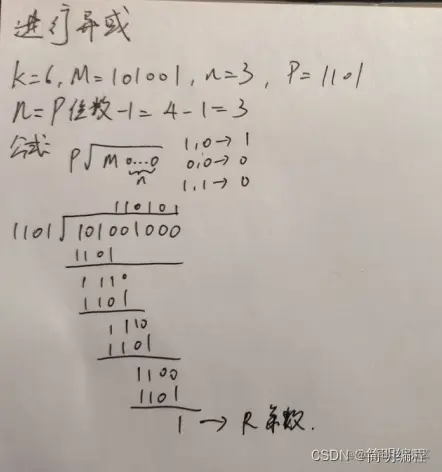 进行异或
k=6, M=101001, n=3, P=1101
n=P位数-1=4-1=3
公式: P√M 0...0
n
1,0→1
0,0→0
1,1→0
110101
1101√101001000
1101
1110
1101
1110
1101
1100
1101
1→R余数.
CSDN @简明编程